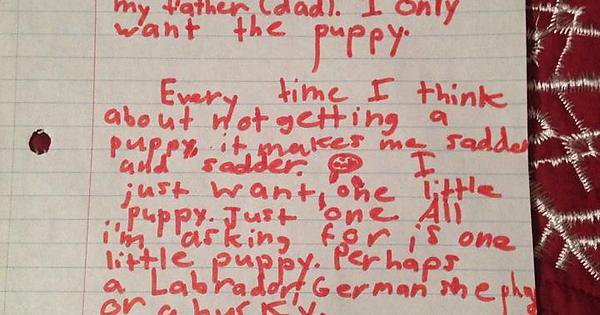 my father (dad). I only
want the puppy.
Every time I think
about not getting a
puppy, it makes me sadder
and sadder. I
just want, one little
puppy. Just one All
i'm asking for is one
little puppy. Perhaps
a Labrador, German
or a husky.